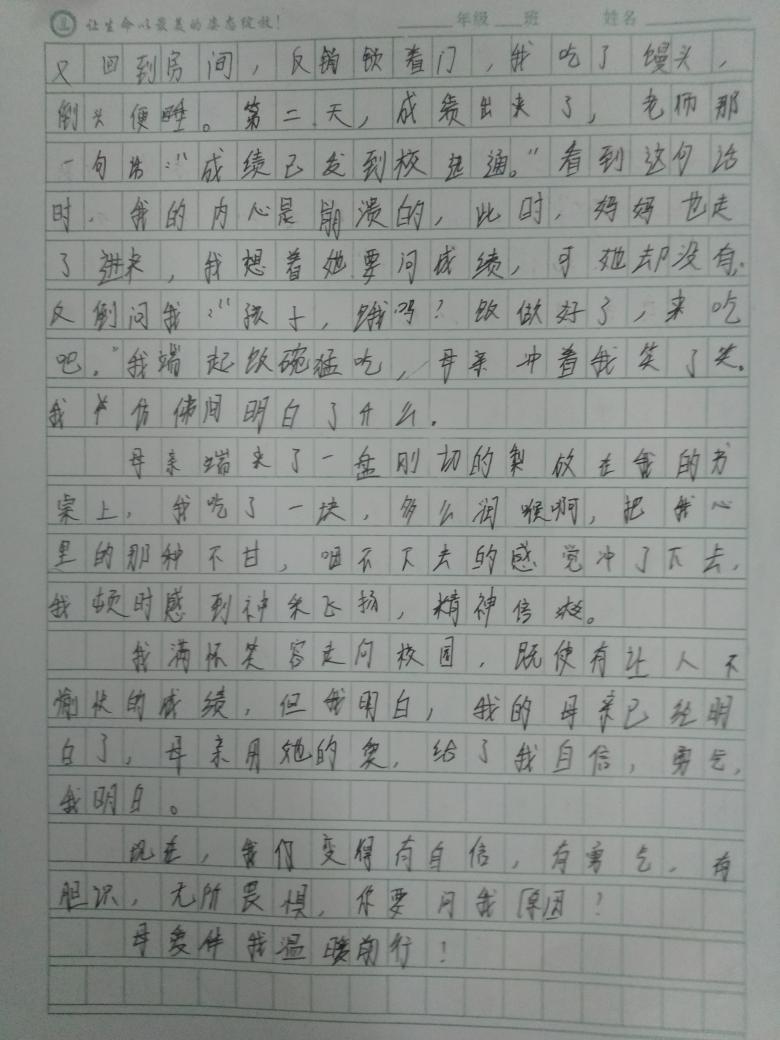 让生命以最美的姿态绽放！ ______年级 ___班 姓名 ______
又回到房间，反锁锁着门，我吃了馒头，
倒头便睡。第二天，成绩出来了，老师那
一句话：“成绩已发到校迅通。”看到这句话
时，我的内心是崩溃的，此时，妈妈也走
了进来，我想着她要问成绩，可她却没有，
反倒问我：“孩子，饿吗？饭做好了，来吃
吧。”我端起饭碗猛吃，母亲冲着我笑了笑。
我仿佛间明白了什么。
母亲端来了一盘刚切的梨放在我的书
桌上，我吃了一块，多么润喉啊，把我心
里的那种不甘，咽不下去的感觉冲了下去，
我顿时感到神采飞扬，精神倍数。
我满怀笑容走向校园，既使有让人不
愉快的成绩，但我明白，我的母亲已经明
白了，母亲用她的爱，给了我自信，勇气，
我明白。
现在，我们变得有自信，有勇气，有
胆识，无所畏惧，你要问我原因？
母爱伴我温暖前行！